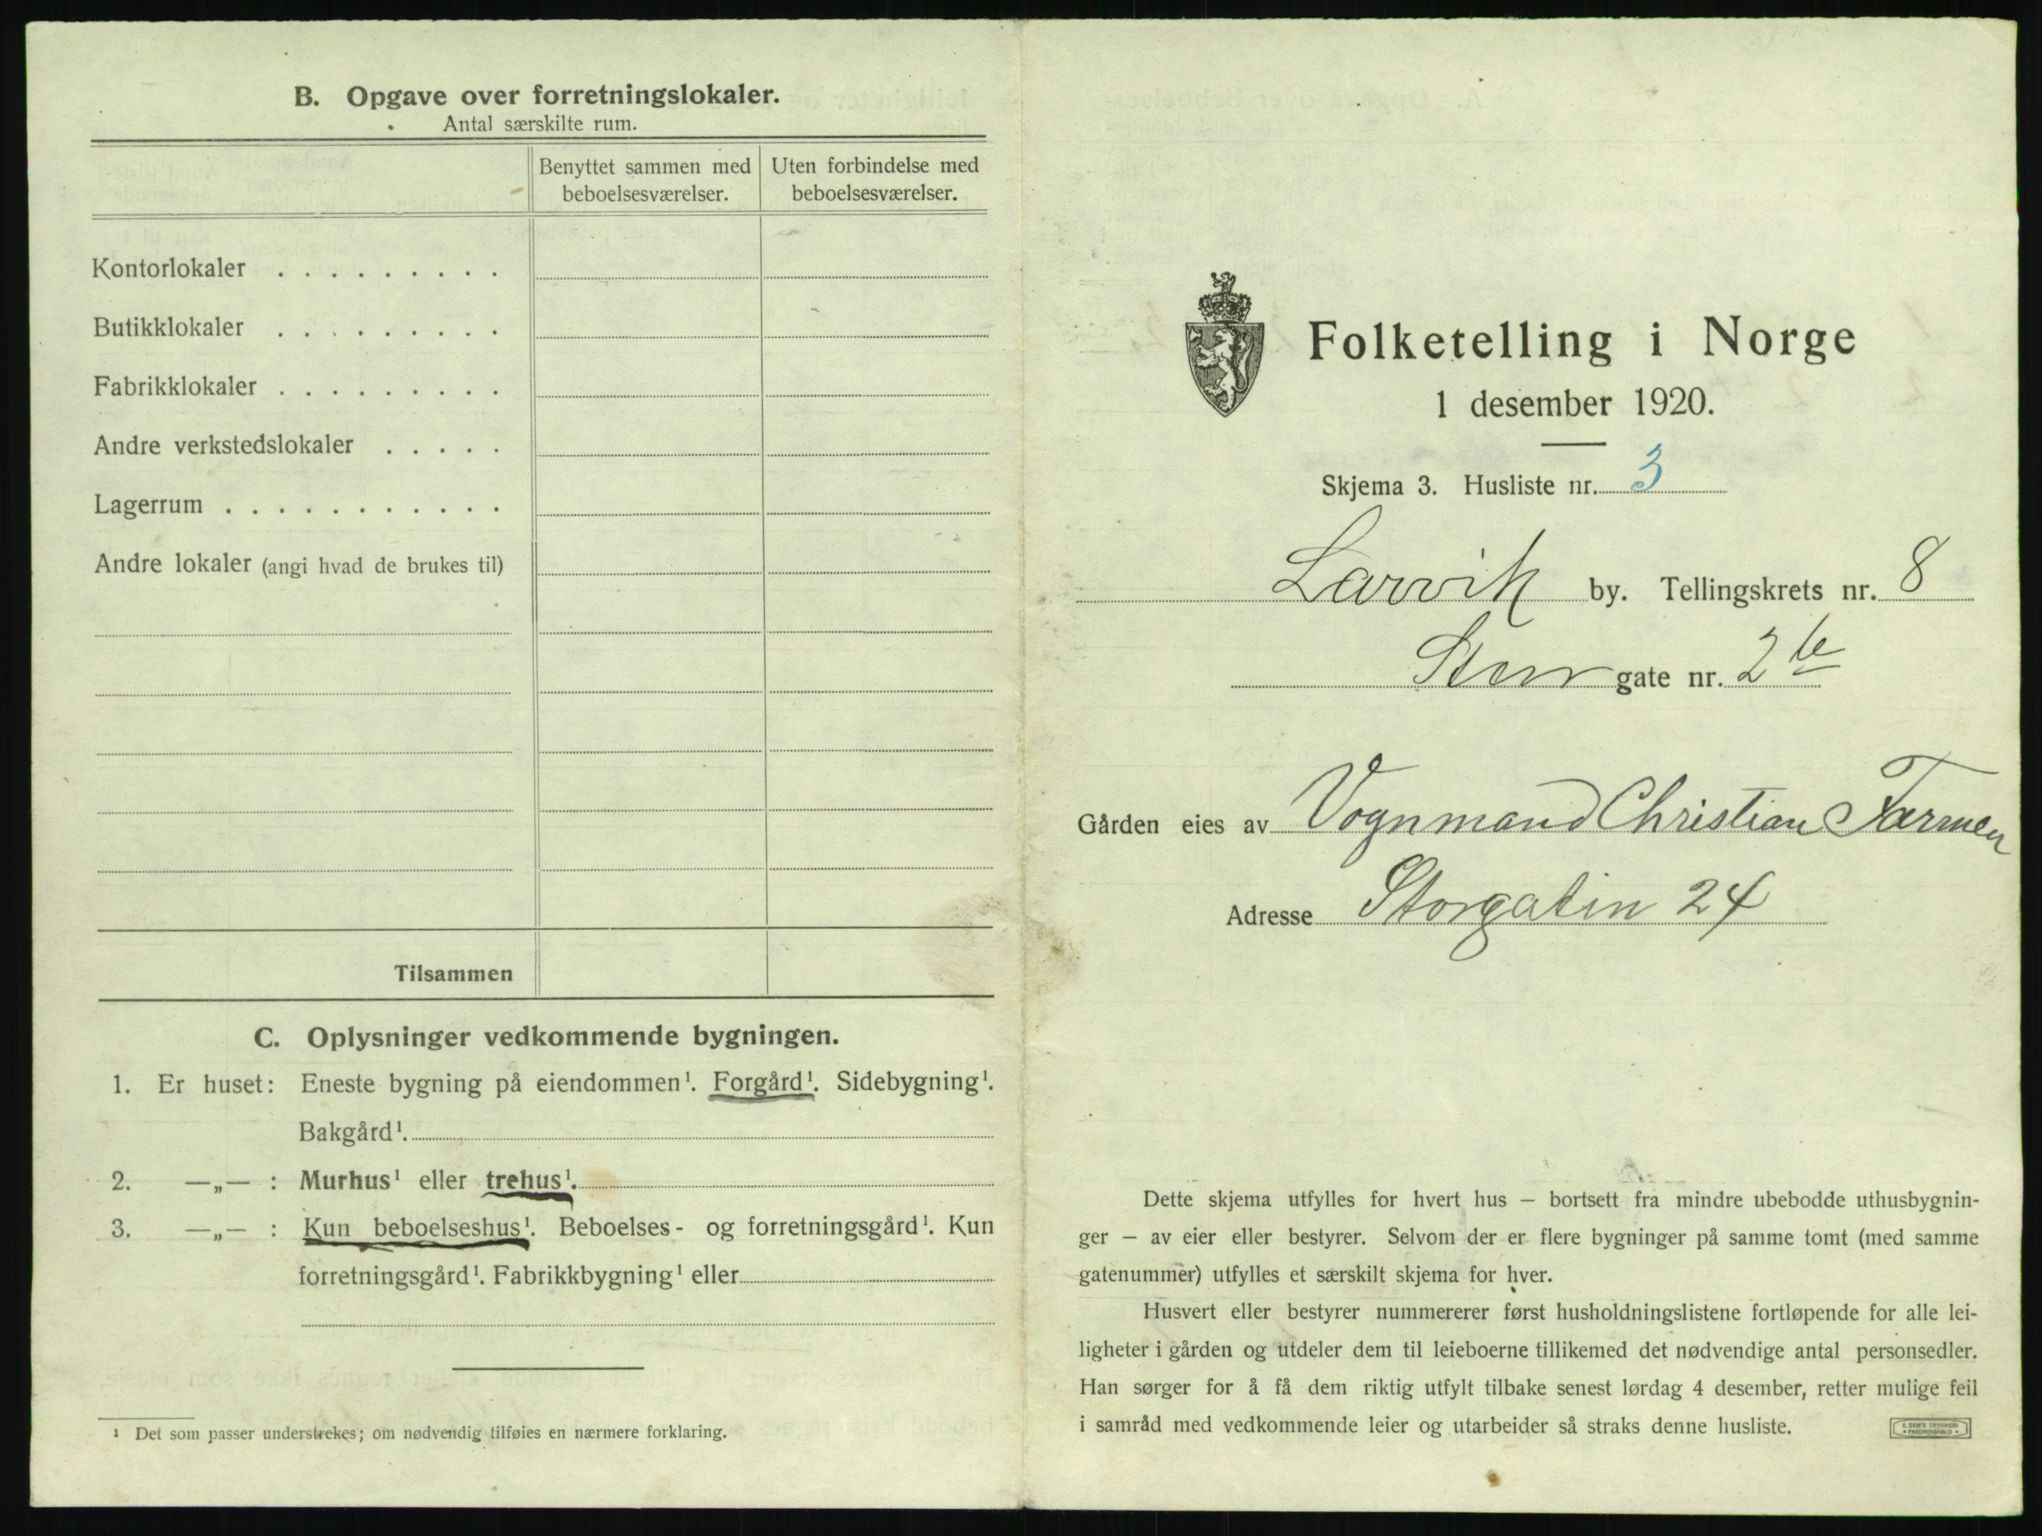 B. Opgave over forretningslokaler.
Antal særskilte rum.
Benyttet sammen med beboelsesværelser.
Uten forbindelse med beboelsesværelser.
Kontorlokaler . . . . . . . . .
Butikklokaler . . . . . . . . .
Fabrikklokaler . . . . . . . . .
Andre verkstedslokaler . . . . .
Lagerrum . . . . . . . . . . .
Andre lokaler (angi hvad de brukes til)
Tilsammen
C. Oplysninger vedkommende bygningen.
1. Er huset: Eneste bygning på eiendommen¹. Forgård¹. Sidebygning¹.
Bakgård¹.
2. —„— : Murhus¹ eller trehus¹.
3. —„— : Kun beboelseshus¹. Beboelses- og forretningsgård¹. Kun
forretningsgård¹. Fabrikkbygning¹ eller
¹ Det som passer understrekes; om nødvendig tilføies en nærmere forklaring.
Folketelling i Norge
1 desember 1920.
Skjema 3. Husliste nr. 3
Larvik by. Tellingskrets nr. 8
Stor gate nr. 2 b
Gården eies av Vognmand Christian Farmen
Adresse Storgaten 24
Dette skjema utfylles for hvert hus – bortsett fra mindre ubebodde uthusbygnin-
ger – av eier eller bestyrer. Selvom der er flere bygninger på samme tomt (med samme
gatenummer) utfylles et særskilt skjema for hver.
Husvert eller bestyrer nummererer først husholdningslistene fortløpende for alle lei-
ligheter i gården og utdeler dem til leieboerne tillikemed det nødvendige antal personsedler.
Han sørger for å få dem riktig utfylt tilbake senest lørdag 4 desember, retter mulige feil
i samråd med vedkommende leier og utarbeider så straks denne husliste.